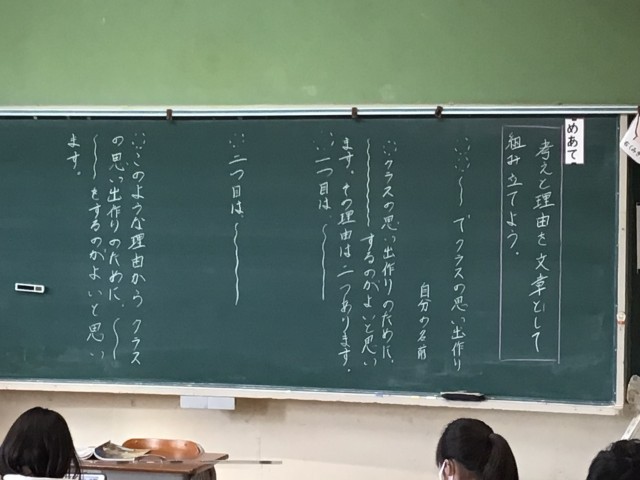 めあて
考えと理由を文章として
組み立てよう。
〜でクラスの思い出作り
自分の名前
クラスの思い出作りのために、
〜するのがよいと思い
ます。その理由は二つあります。
一つ目は、〜
二つ目は、〜
このような理由から クラス
の思い出作りのために、〜
〜をするのがよいと思い
ます。